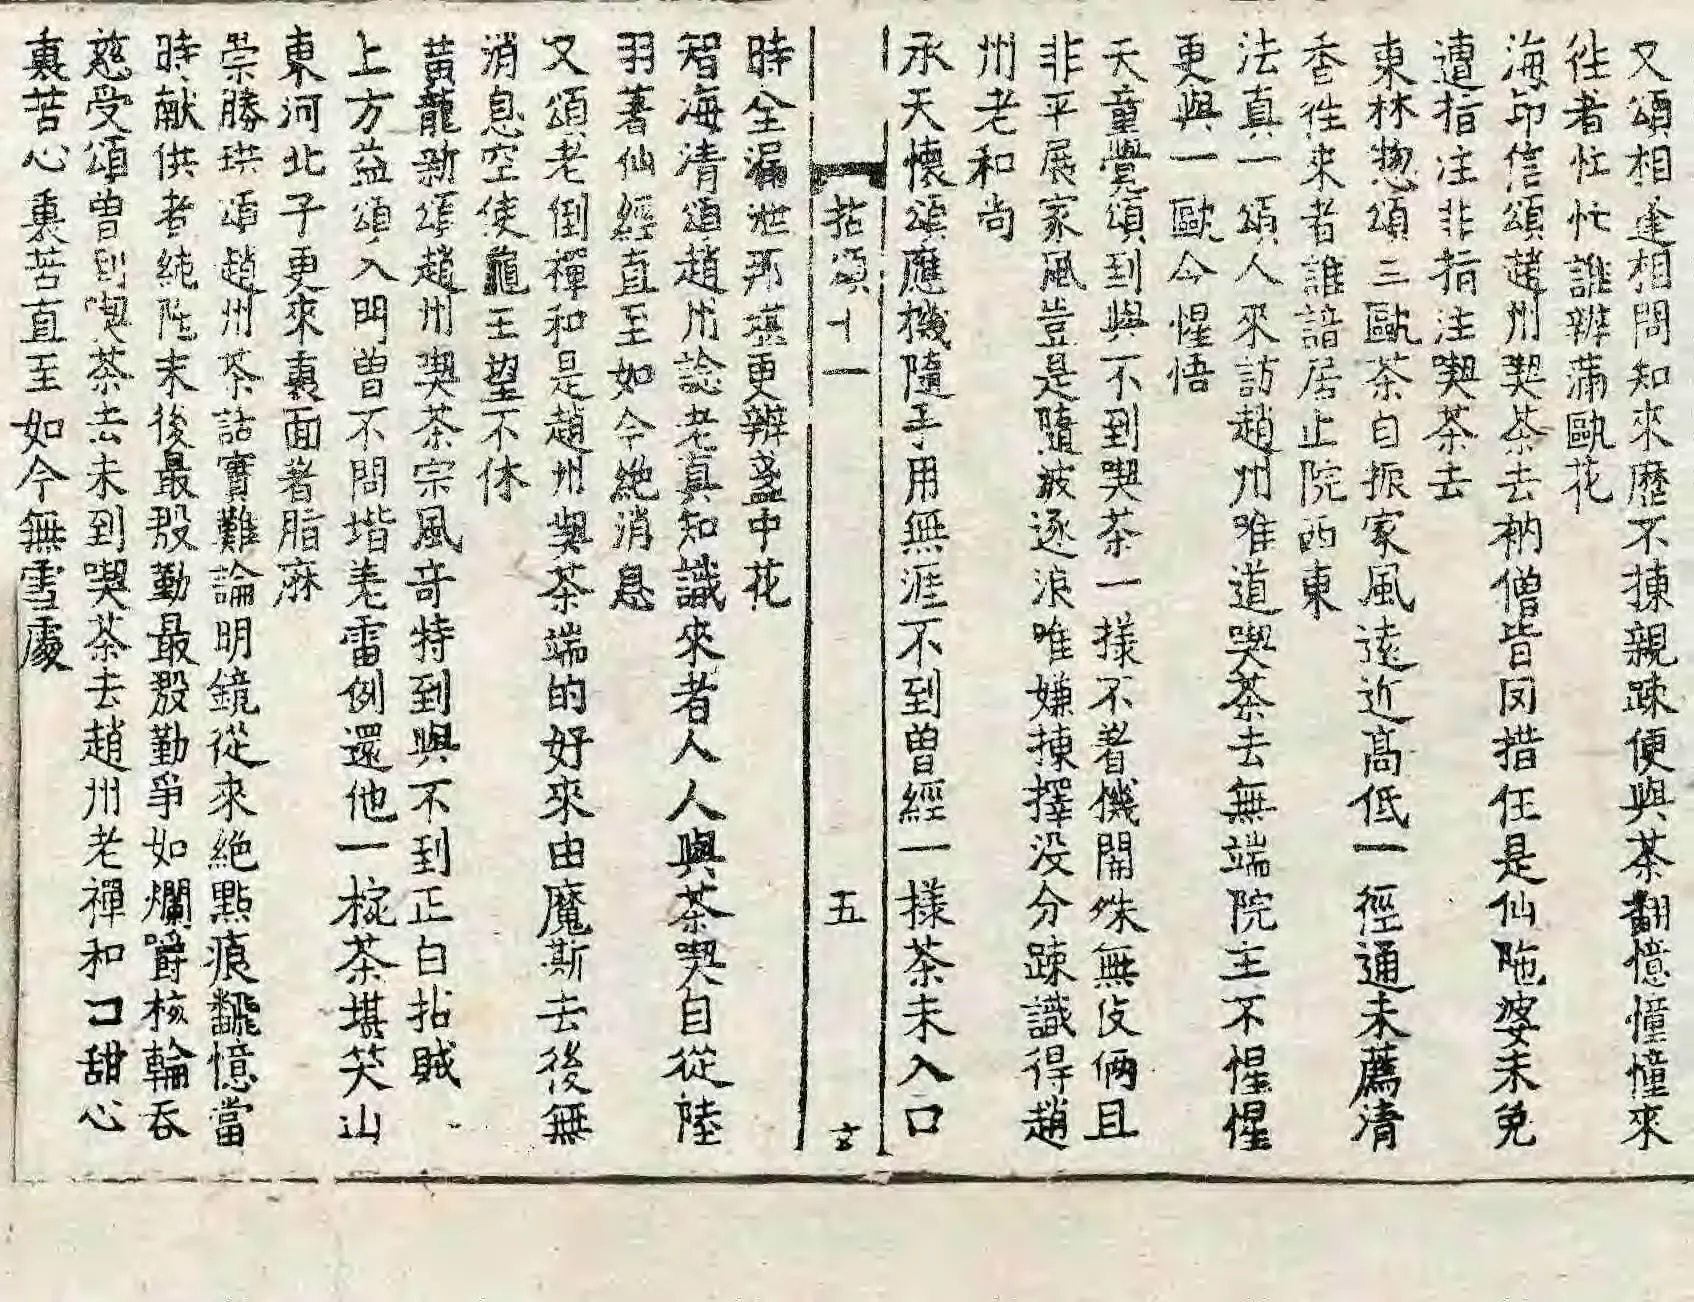 又頌相逢相問知來歷不揀親踈便與茶翻憶憧憧來
徃者忙忙誰辨滿甌花
海印信頌趙州喫茶去衲僧皆罔措任是仙陁婆未免
遭指注非指注喫茶去
東林惣頌三甌茶自振家風遠近髙低一徑通未薦清
香徃來者誰諳居止院西東
法真一頌人來訪趙州唯道喫茶去無端院主不惺惺
更與一甌令惺悟
天童覺頌到與不到喫茶一㨾不著機關殊無伎倆且
非平展家風豈是隨波逐浪唯嫌揀擇没分踈識得趙
州老和尚
承天懷頌應機隨手用無涯不到曾經一樣茶未入口
拈頌十一 五 玄
時全漏泄那堪更辨盞中花
智海清頌趙州諗老真知識來者人人與茶喫自從陸
羽著仙經直至如今絶消息
又頌老倒禪和是趙州喫茶端的好來由魔斯去後無
消息空使龜王望不休
黃龍新頌趙州喫茶宗風竒特到與不到正白拈賊
上方益頌入門曾不問堦差雷例還他一椀茶堪笑山
東河北子更來裏面著脂麻
崇勝珙頌趙州茶話實難論明鏡從來絶點痕翻憶當
時献供者純陁末後最殷勤最殷勤爭如爛嚼核輪吞
慈受頌曾到喫茶去未到喫茶去趙州老禪和口甜心
裏苦心裏苦直至如今無雪處